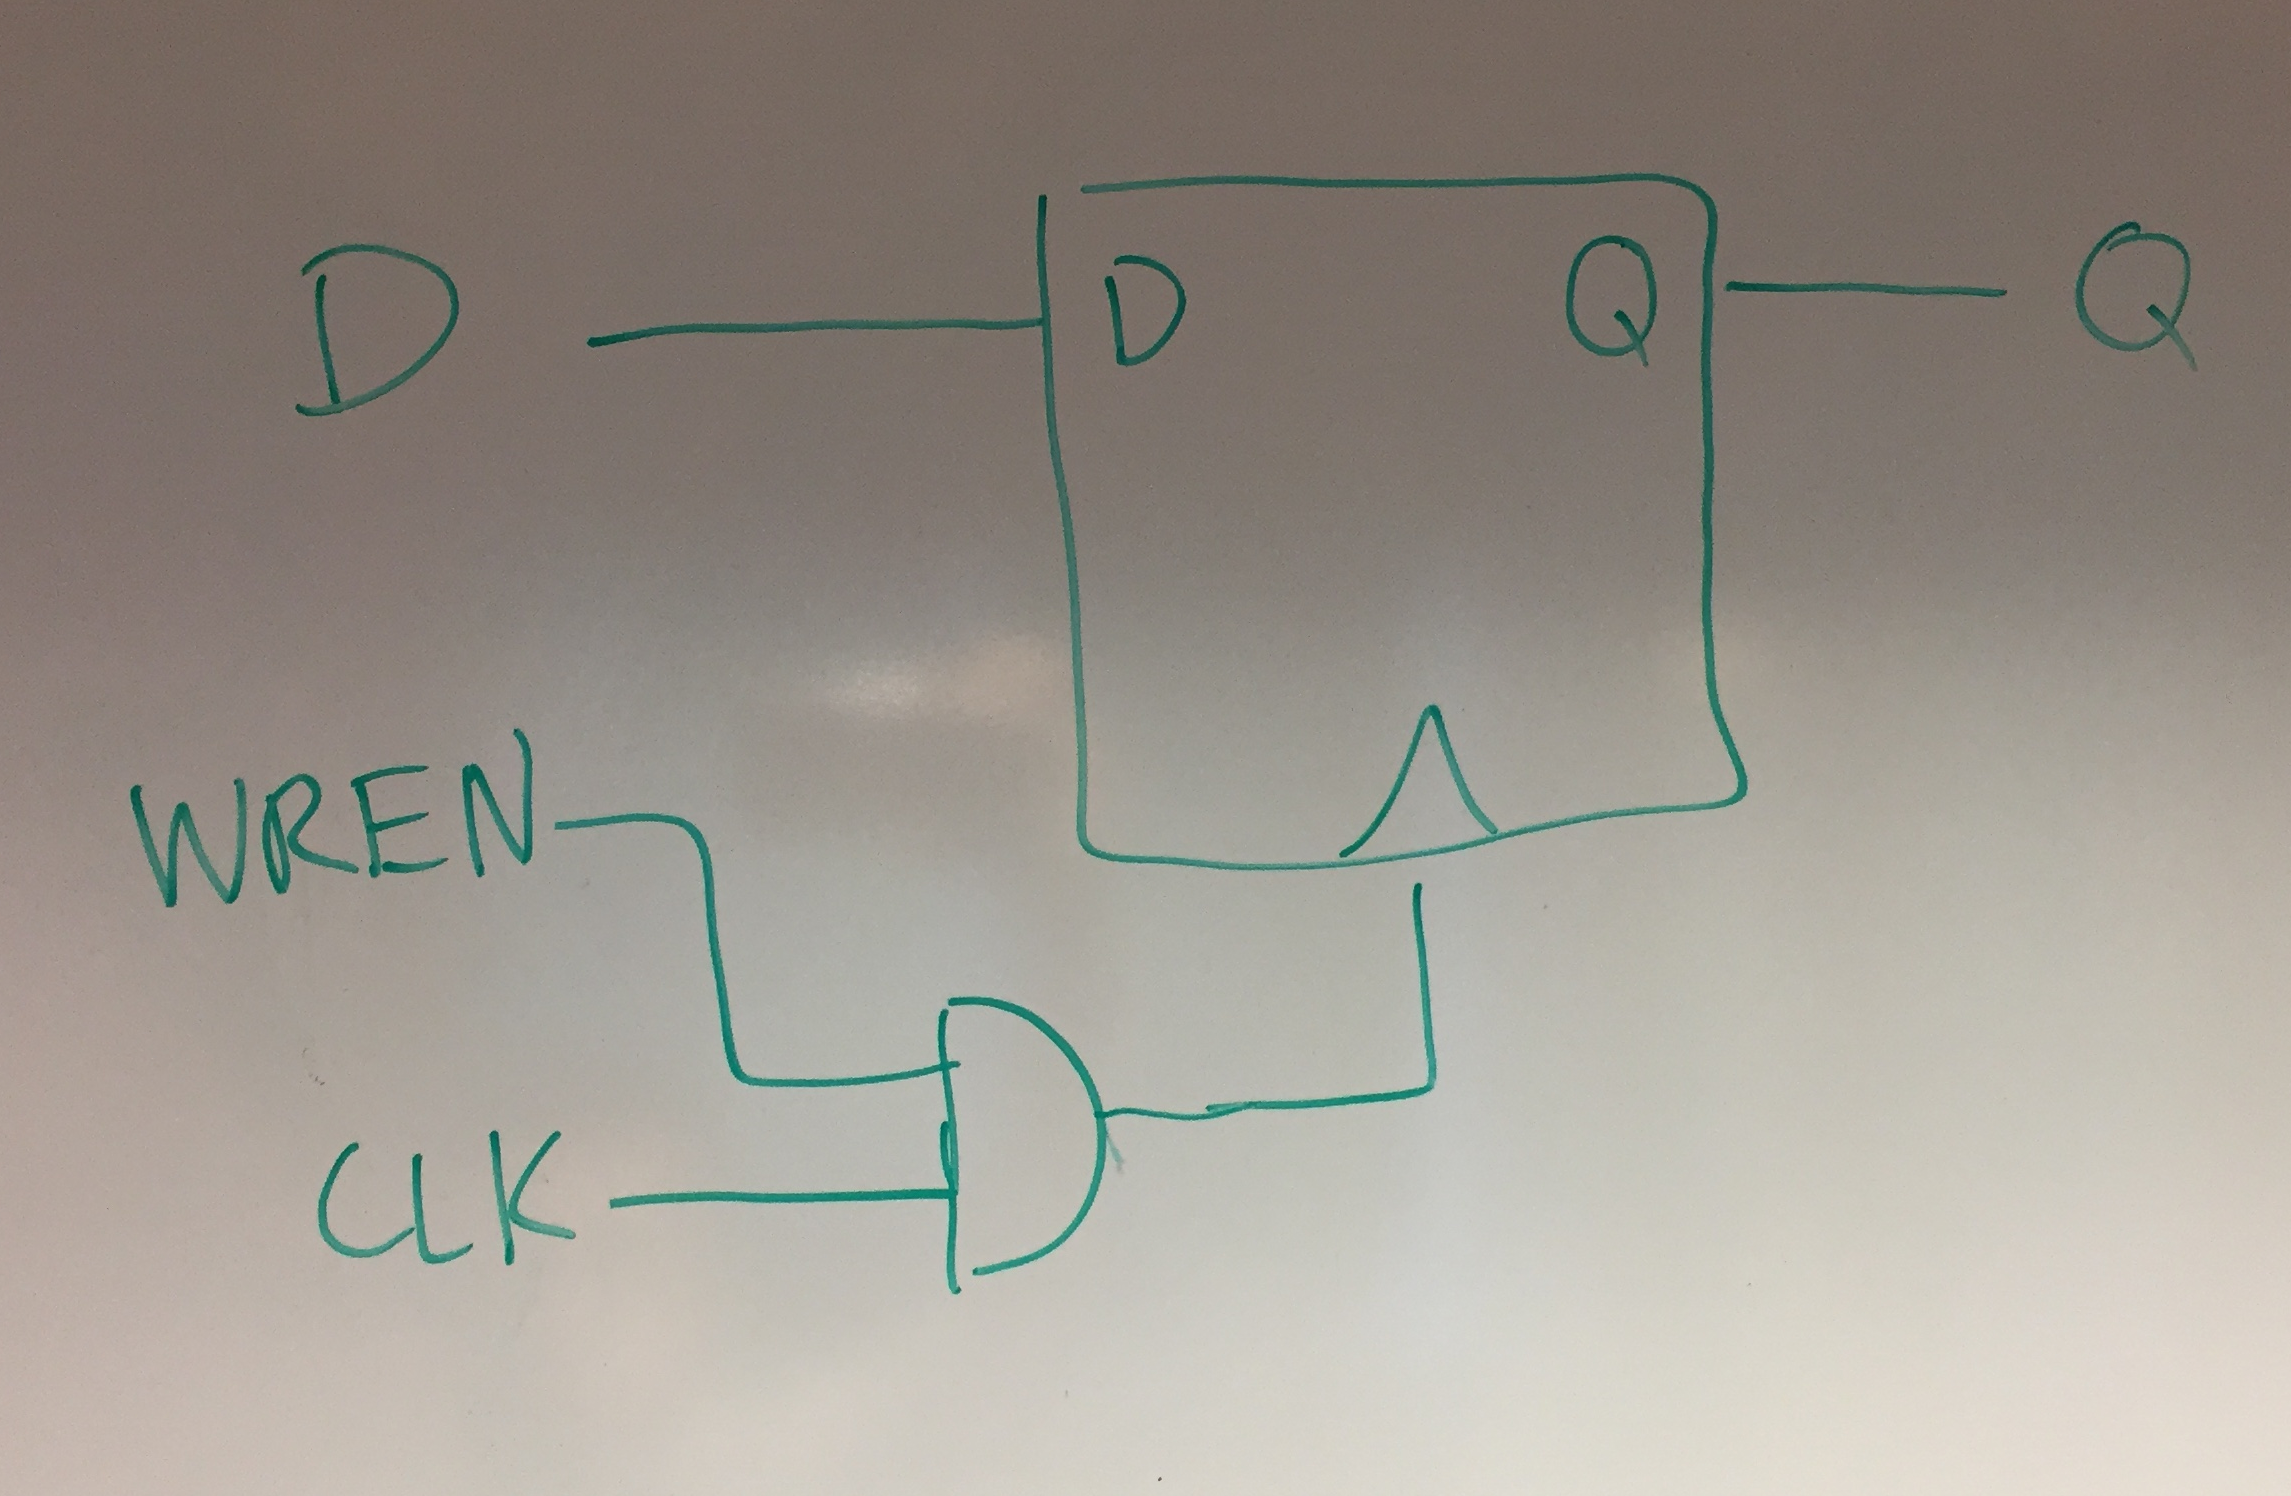 D
D
Q
Q
WREN
CLK